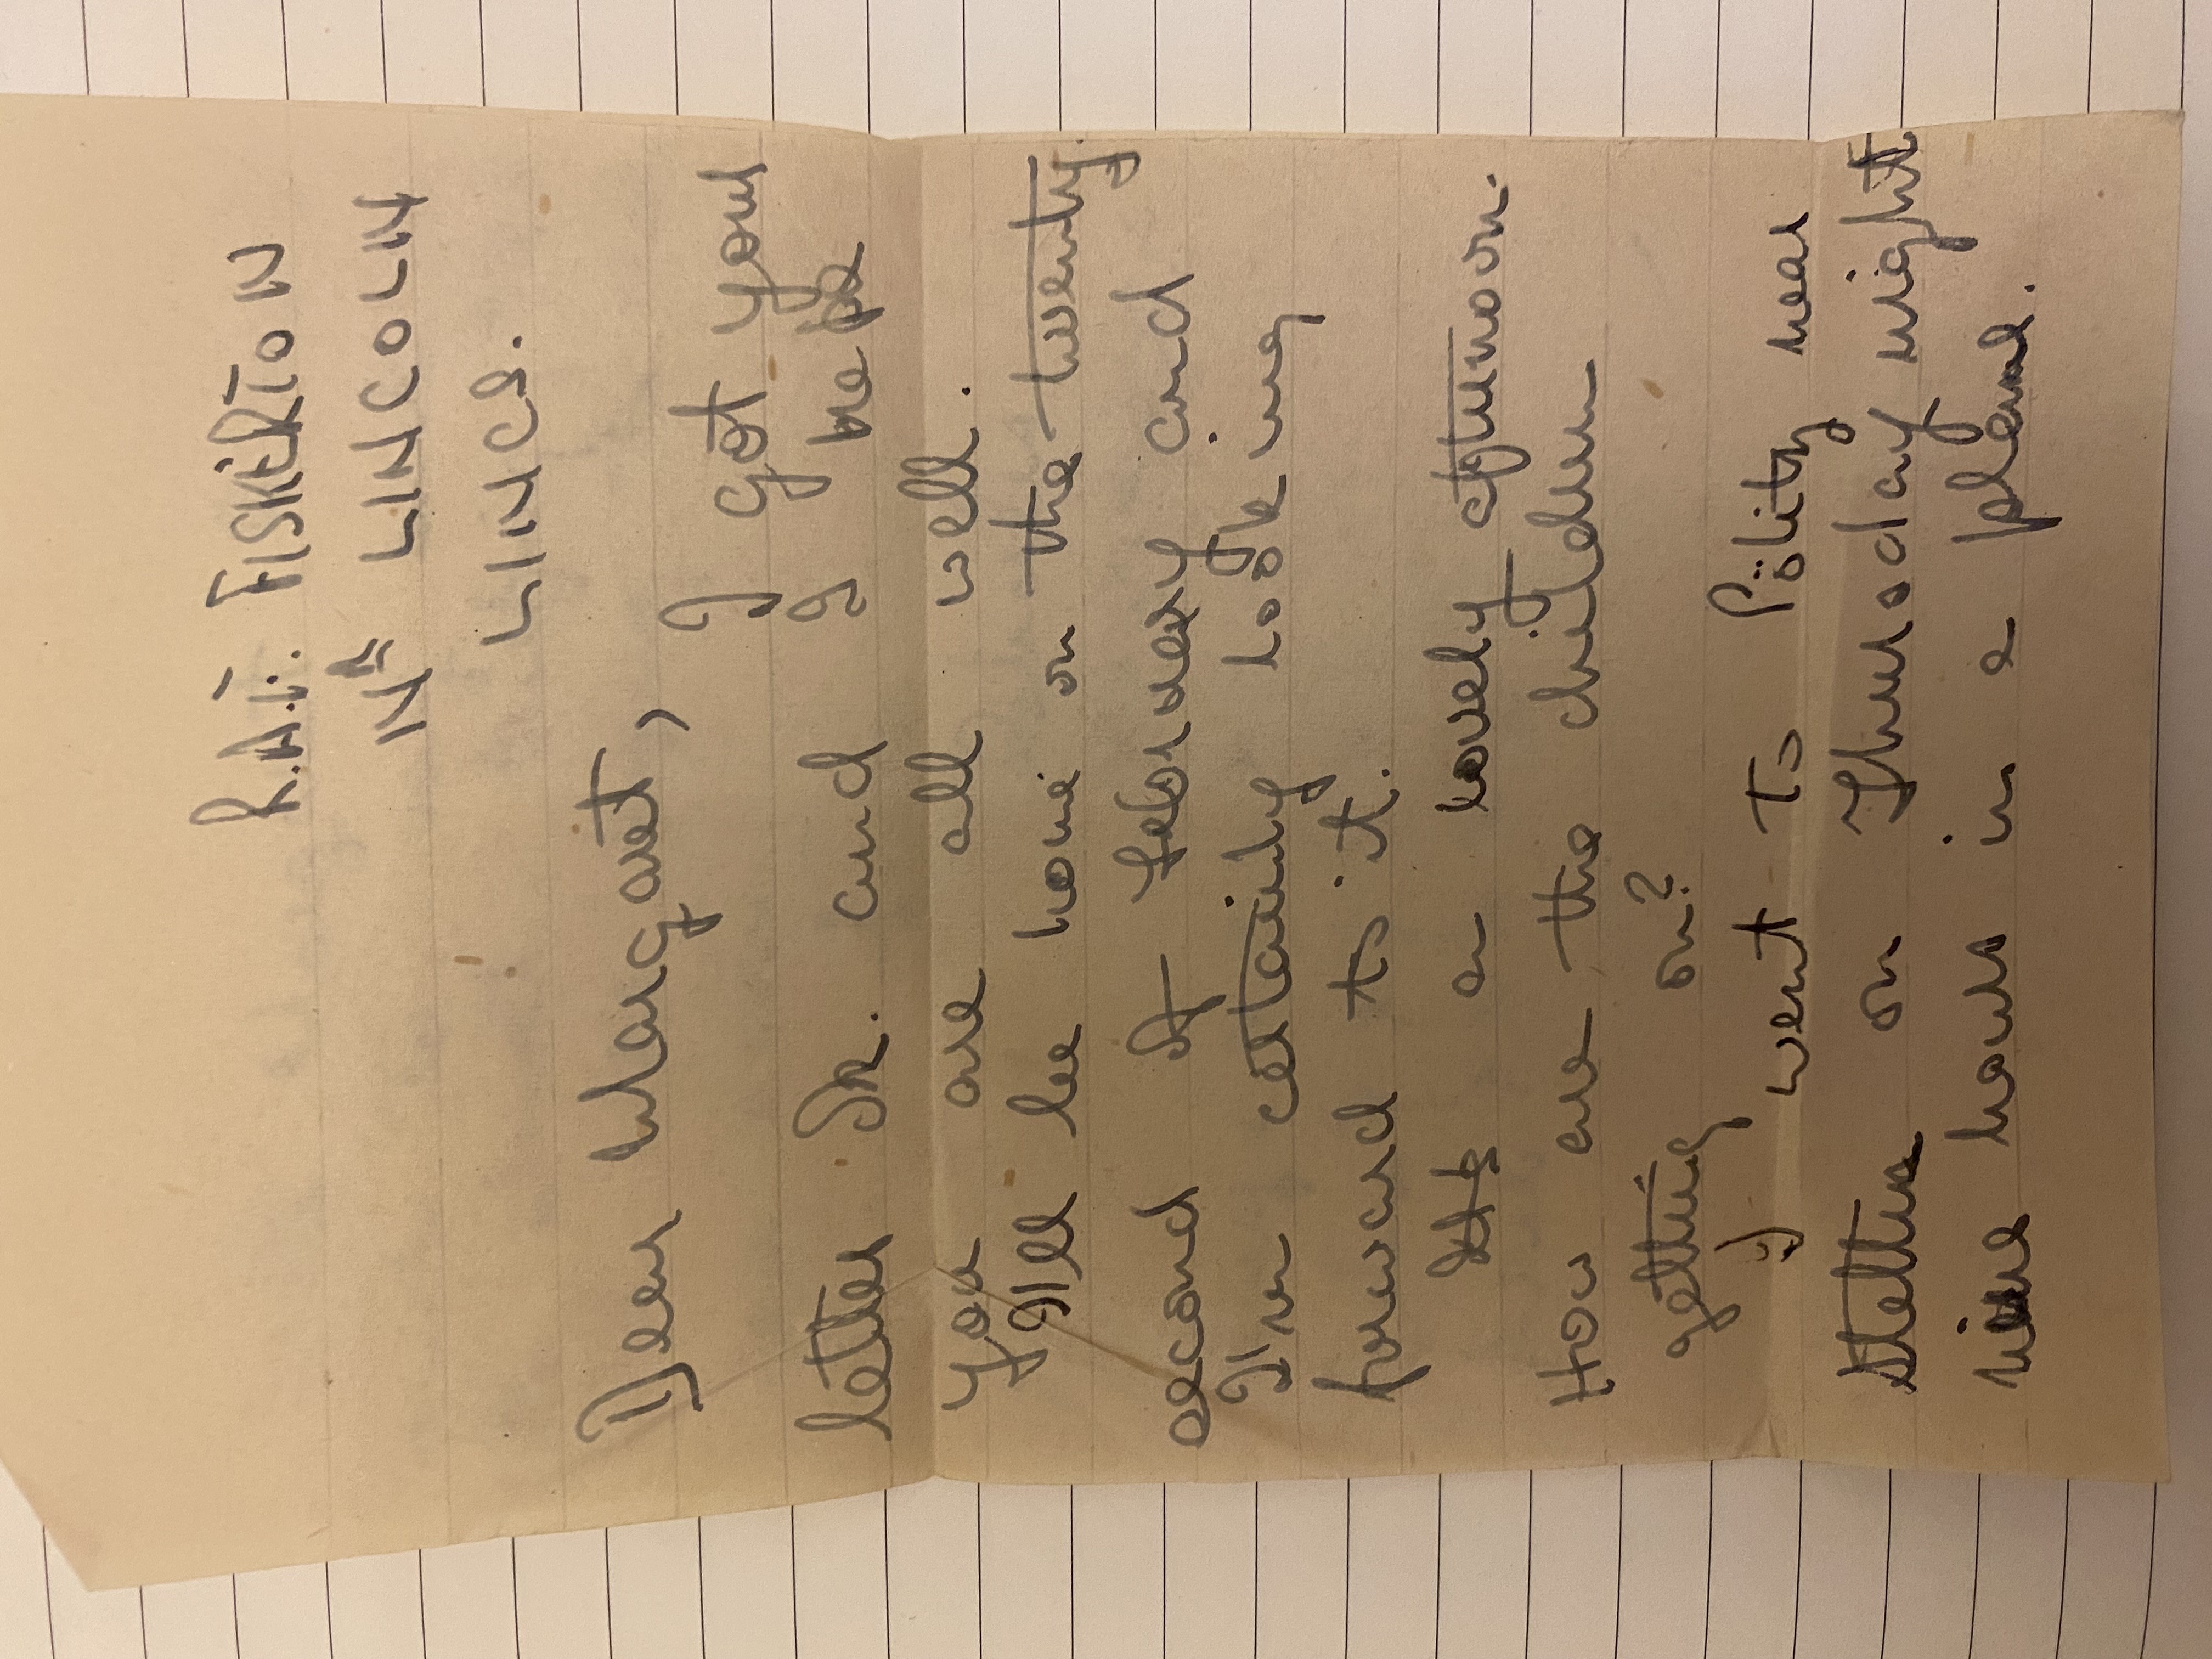 R.A.F. FISKERTON
Nᴿ LINCOLN
LINCS.
Dear Margaret,
I got your
letter Ok. and I hope
you are all well.
I'll be home on the twenty
second of February and
I'm certainly looking
forward to it.
It's a lovely afternoon.
How are the children
getting on?
I went to Pölitz near
Stettin on Thursday night
nine hours in a plane.